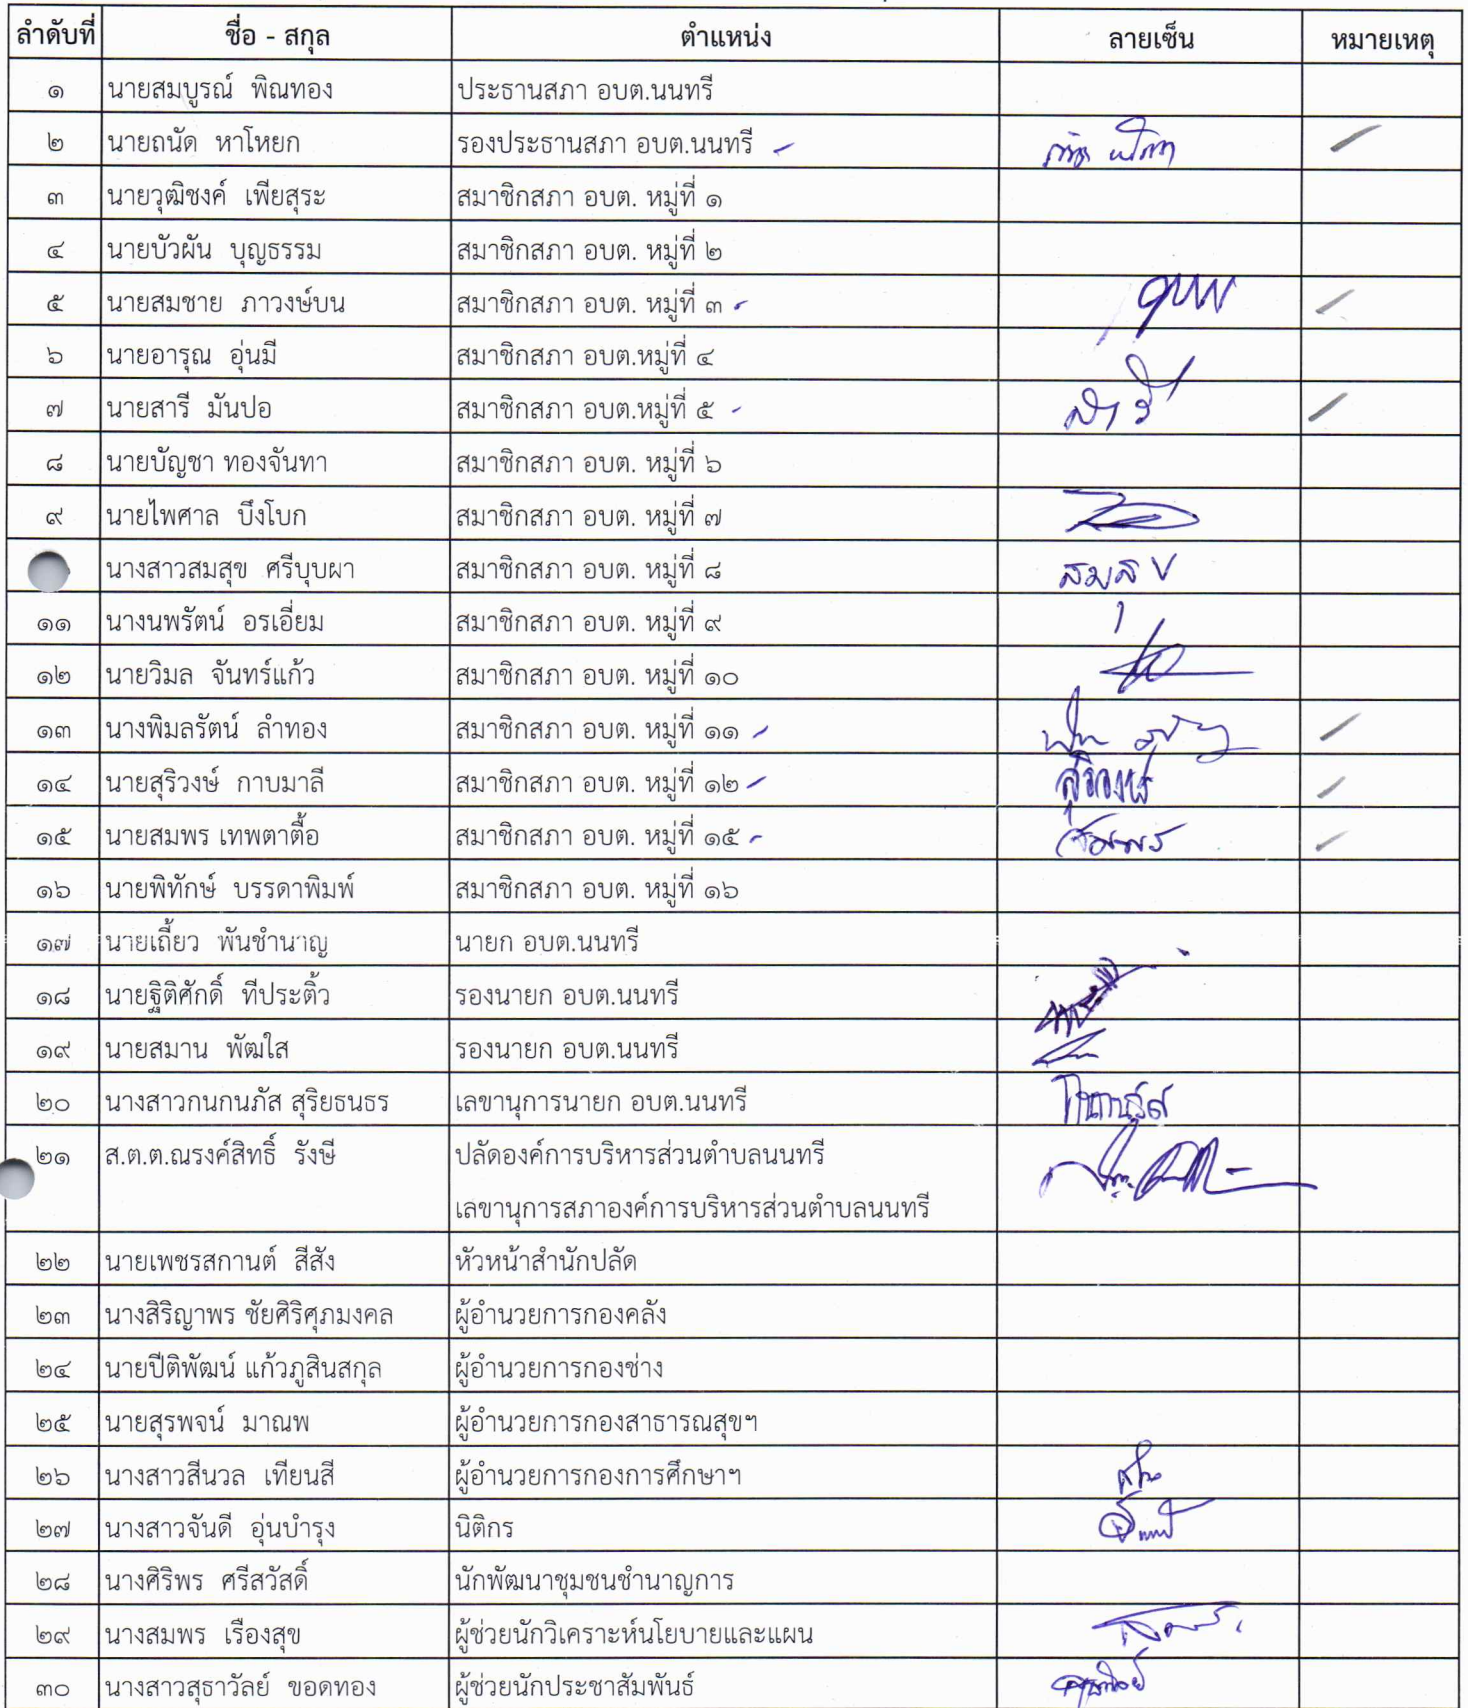 ลำดับที่ ชื่อ - สกุล ตำแหน่ง ลายเซ็น หมายเหตุ
๑ นายสมบูรณ์ พิณทอง ประธานสภา อบต.นนทรี
๒ นายถนัด หาโหยก รองประธานสภา อบต.นนทรี
๓ นายวุฒิชงค์ เพียสุระ สมาชิกสภา อบต. หมู่ที่ ๑
๔ นายบัวผัน บุญธรรม สมาชิกสภา อบต. หมู่ที่ ๒
๕ นายสมชาย ภาวงษ์บน สมาชิกสภา อบต. หมู่ที่ ๓
๖ นายอารุณ อุ่นมี สมาชิกสภา อบต.หมู่ที่ ๔
๗ นายสารี มันปอ สมาชิกสภา อบต.หมู่ที่ ๕ สารี
๘ นายบัญชา ทองจันทา สมาชิกสภา อบต. หมู่ที่ ๖
๙ นายไพศาล บึงโบก สมาชิกสภา อบต. หมู่ที่ ๗
นางสาวสมสุข ศรีบุบผา สมาชิกสภา อบต. หมู่ที่ ๘ สมสุข
๑๑ นางนพรัตน์ อรเอี่ยม สมาชิกสภา อบต. หมู่ที่ ๙
๑๒ นายวิมล จันทร์แก้ว สมาชิกสภา อบต. หมู่ที่ ๑๐
๑๓ นางพิมลรัตน์ ลำทอง สมาชิกสภา อบต. หมู่ที่ ๑๑
๑๔ นายสุริวงษ์ กาบมาลี สมาชิกสภา อบต. หมู่ที่ ๑๒ สุริวงษ์
๑๕ นายสมพร เทพตาตื้อ สมาชิกสภา อบต. หมู่ที่ ๑๕ สมพร
๑๖ นายพิทักษ์ บรรดาพิมพ์ สมาชิกสภา อบต. หมู่ที่ ๑๖
๑๗ นายเถี้ยว พันชำนาญ นายก อบต.นนทรี
๑๘ นายฐิติศักดิ์ ทีประติ้ว รองนายก อบต.นนทรี
๑๙ นายสมาน พัฒใส รองนายก อบต.นนทรี
๒๐ นางสาวกนกนภัส สุริยธนธร เลขานุการนายก อบต.นนทรี
๒๑ ส.ต.ต.ณรงค์สิทธิ์ รังษี ปลัดองค์การบริหารส่วนตำบลนนทรี
เลขานุการสภาองค์การบริหารส่วนตำบลนนทรี
๒๒ นายเพชรสกานต์ สีสัง หัวหน้าสำนักปลัด
๒๓ นางสิริญาพร ชัยศิริศุภมงคล ผู้อำนวยการกองคลัง
๒๔ นายปีติพัฒน์ แก้วภูสินสกุล ผู้อำนวยการกองช่าง
๒๕ นายสุรพจน์ มาณพ ผู้อำนวยการกองสาธารณสุขฯ
๒๖ นางสาวสีนวล เทียนสี ผู้อำนวยการกองการศึกษาฯ
๒๗ นางสาวจันดี อุ่นบำรุง นิติกร
๒๘ นางศิริพร ศรีสวัสดิ์ นักพัฒนาชุมชนชำนาญการ
๒๙ นางสมพร เรืองสุข ผู้ช่วยนักวิเคราะห์นโยบายและแผน
๓๐ นางสาวสุธาวัลย์ ขอดทอง ผู้ช่วยนักประชาสัมพันธ์